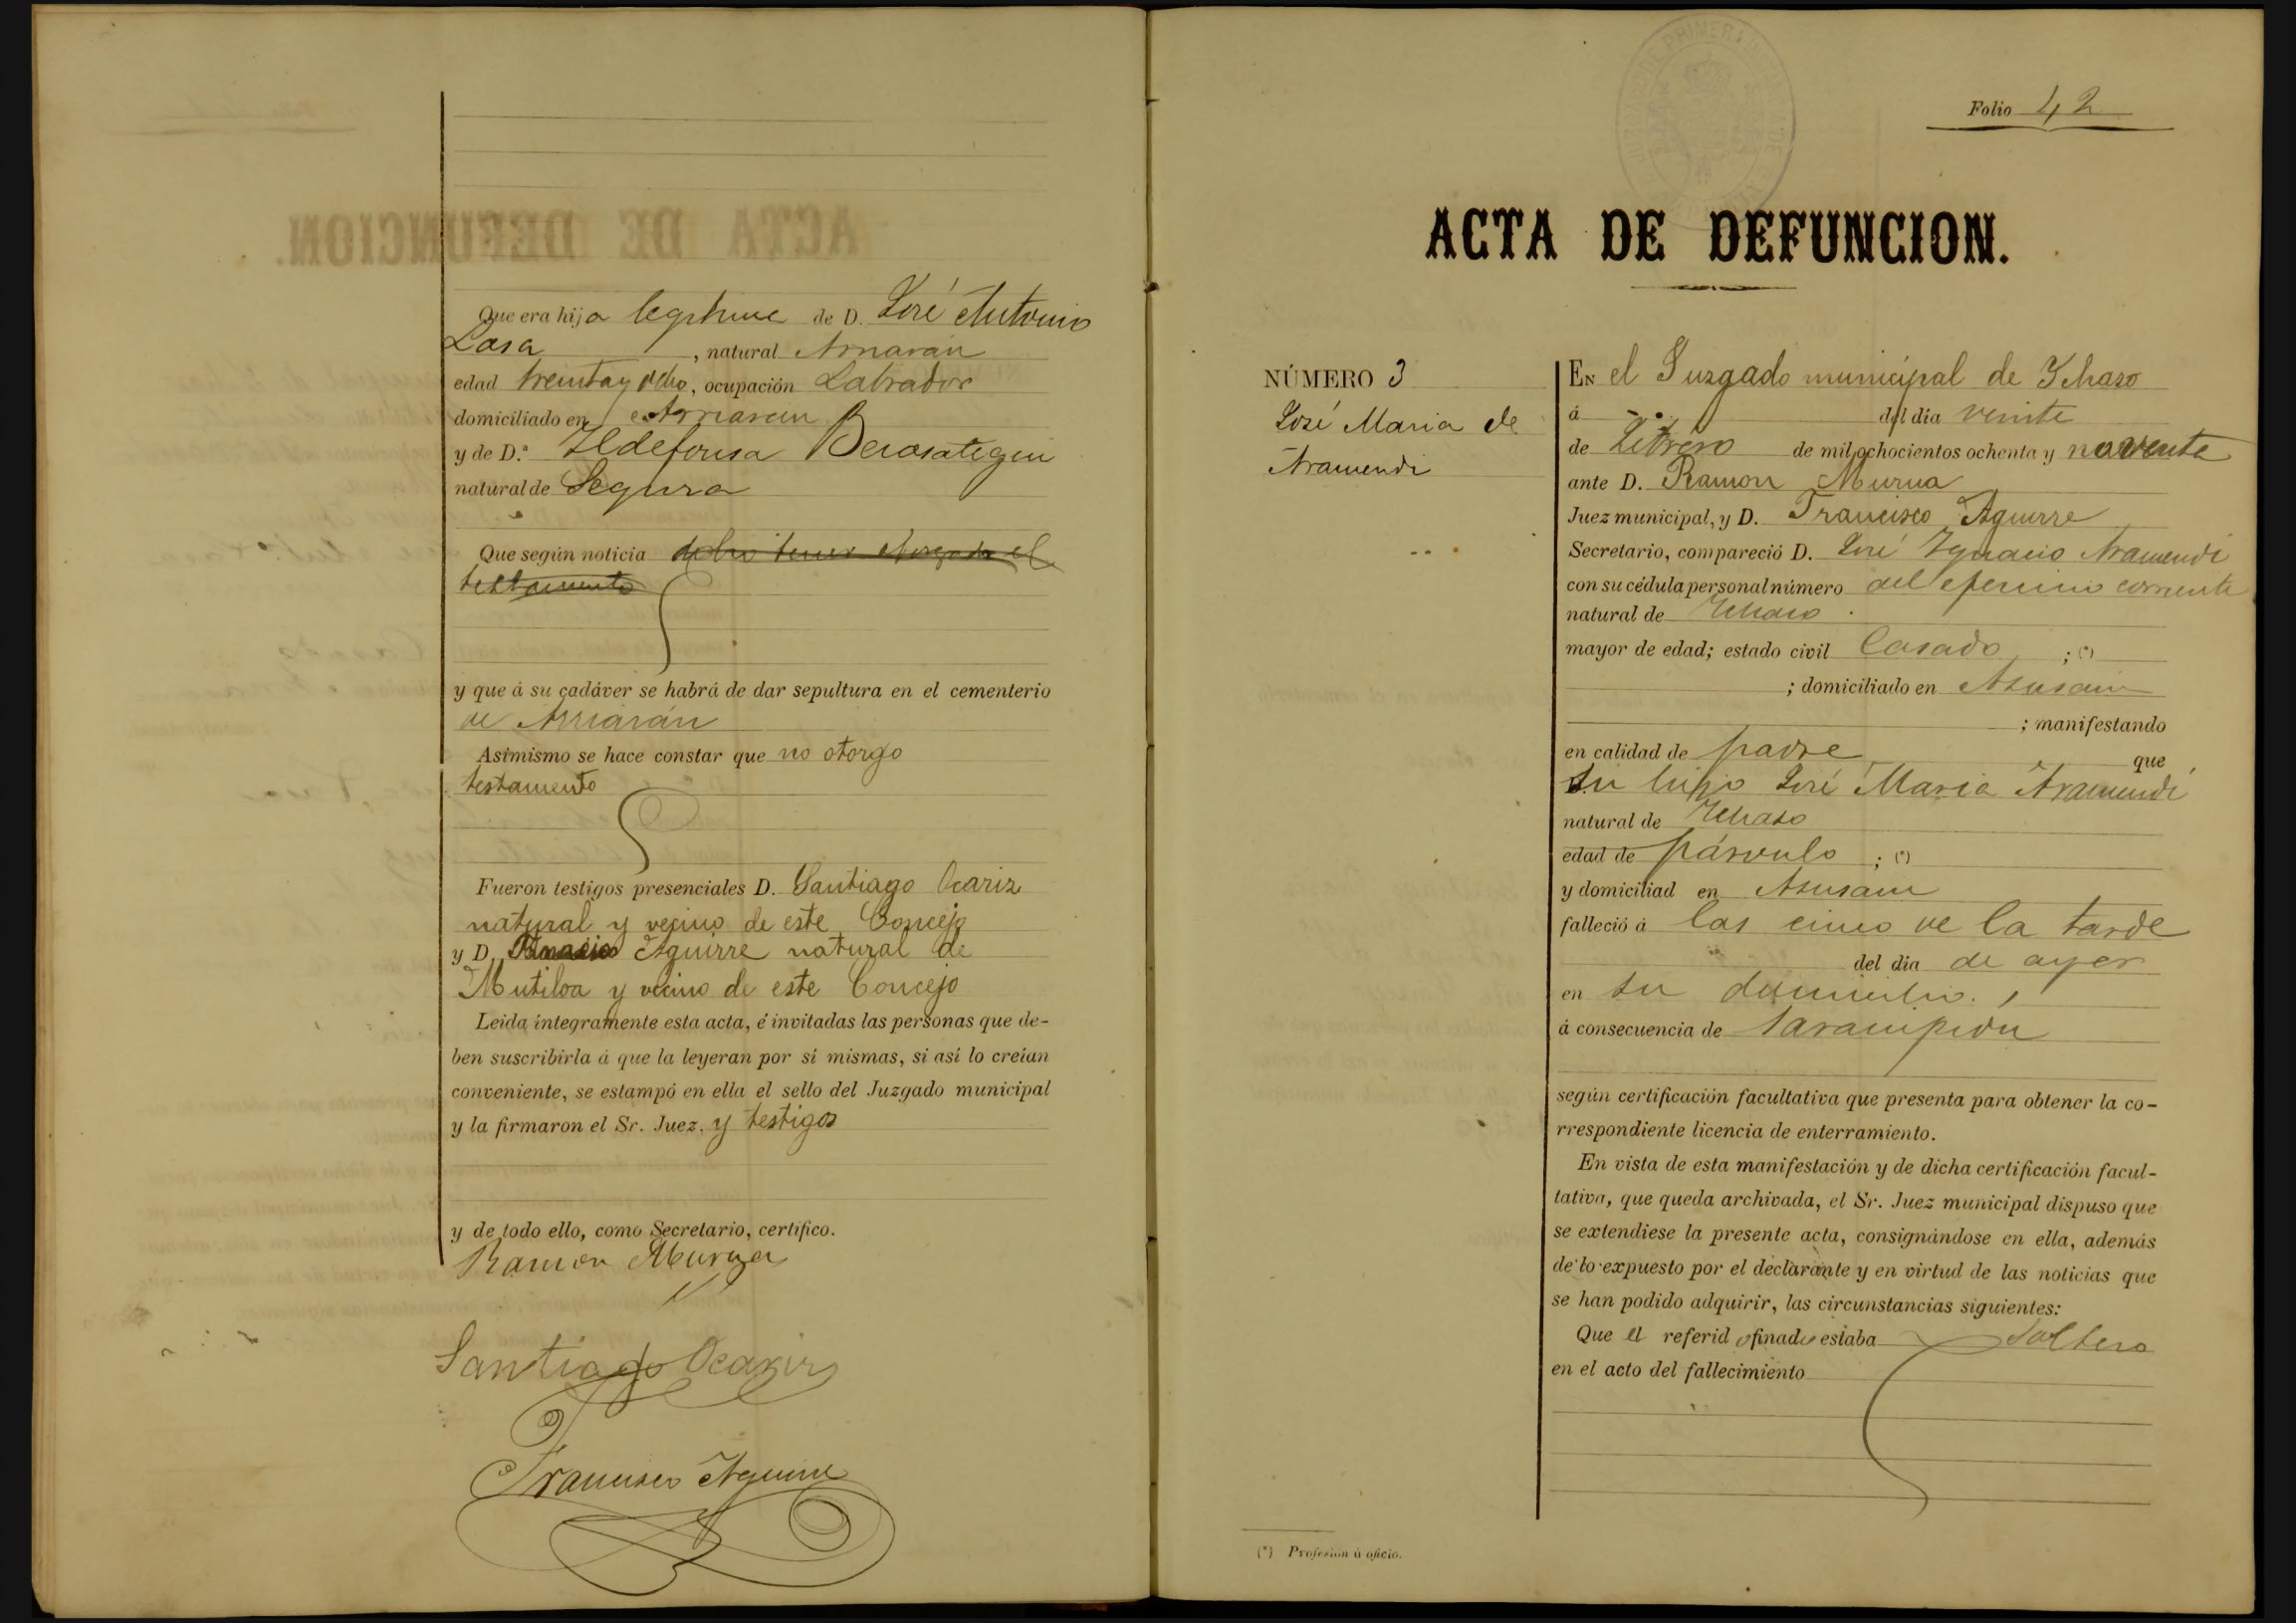 Que era hija legitima de D. José Antonio
Lasa, natural Arriarán
edad treinta y ocho, ocupación Labrador
domiciliado en Arriaran
y de D.ª Ildefonsa Berasategui
natural de Segura
Que según noticia debio tener otorgado el
testamento
y que á su cadáver se habrá de dar sepultura en el cementerio
de Arriarán
Asimismo se hace constar que no otorgo
testamento
Fueron testigos presenciales D. Santiago Ocariz
natural y vecino de este Concejo
y D. Aguirre natural de
Mutiloa y vecino de este Concejo
Leida íntegramente esta acta, é invitadas las personas que de-
ben suscribirla á que la leyeran por sí mismas, si así lo creían
conveniente, se estampó en ella el sello del Juzgado municipal
y la firmaron el Sr. Juez. y testigos
y de todo ello, como Secretario, certifico.
Ramon Murua
Santiago Ocariz
Francisco Aguirre
Folio 42
ACTA DE DEFUNCION.
NÚMERO 3
José Maria de
Aramendi
EN el Juzgado municipal de Ychaso
á del día veinte
de Febrero de mil ochocientos ochenta y noventa
ante D. Ramon Murua
Juez municipal, y D. Francisco Aguirre
Secretario, compareció D. José Ygnacio Aramendi
con su cédula personal número del corriente
natural de Ychaso
mayor de edad; estado civil Casado ; (*)
; domiciliado en Asusain
; manifestando
en calidad de padre que
su hijo José Maria Aramendi
natural de Ychaso
edad de párvulo ; (*)
y domiciliad en Asusain
falleció á las cinco de la tarde
del día de ayer
en su domicilio.
á consecuencia de Sarampion
según certificación facultativa que presenta para obtener la co-
rrespondiente licencia de enterramiento.
En vista de esta manifestación y de dicha certificación facul-
tativa, que queda archivada, el Sr. Juez municipal dispuso que
se extendiese la presente acta, consignándose en ella, además
de lo expuesto por el declarante y en virtud de las noticias que
se han podido adquirir, las circunstancias siguientes:
Que el referido finado estaba Soltero
en el acto del fallecimiento
(*) Profesión ú oficio.